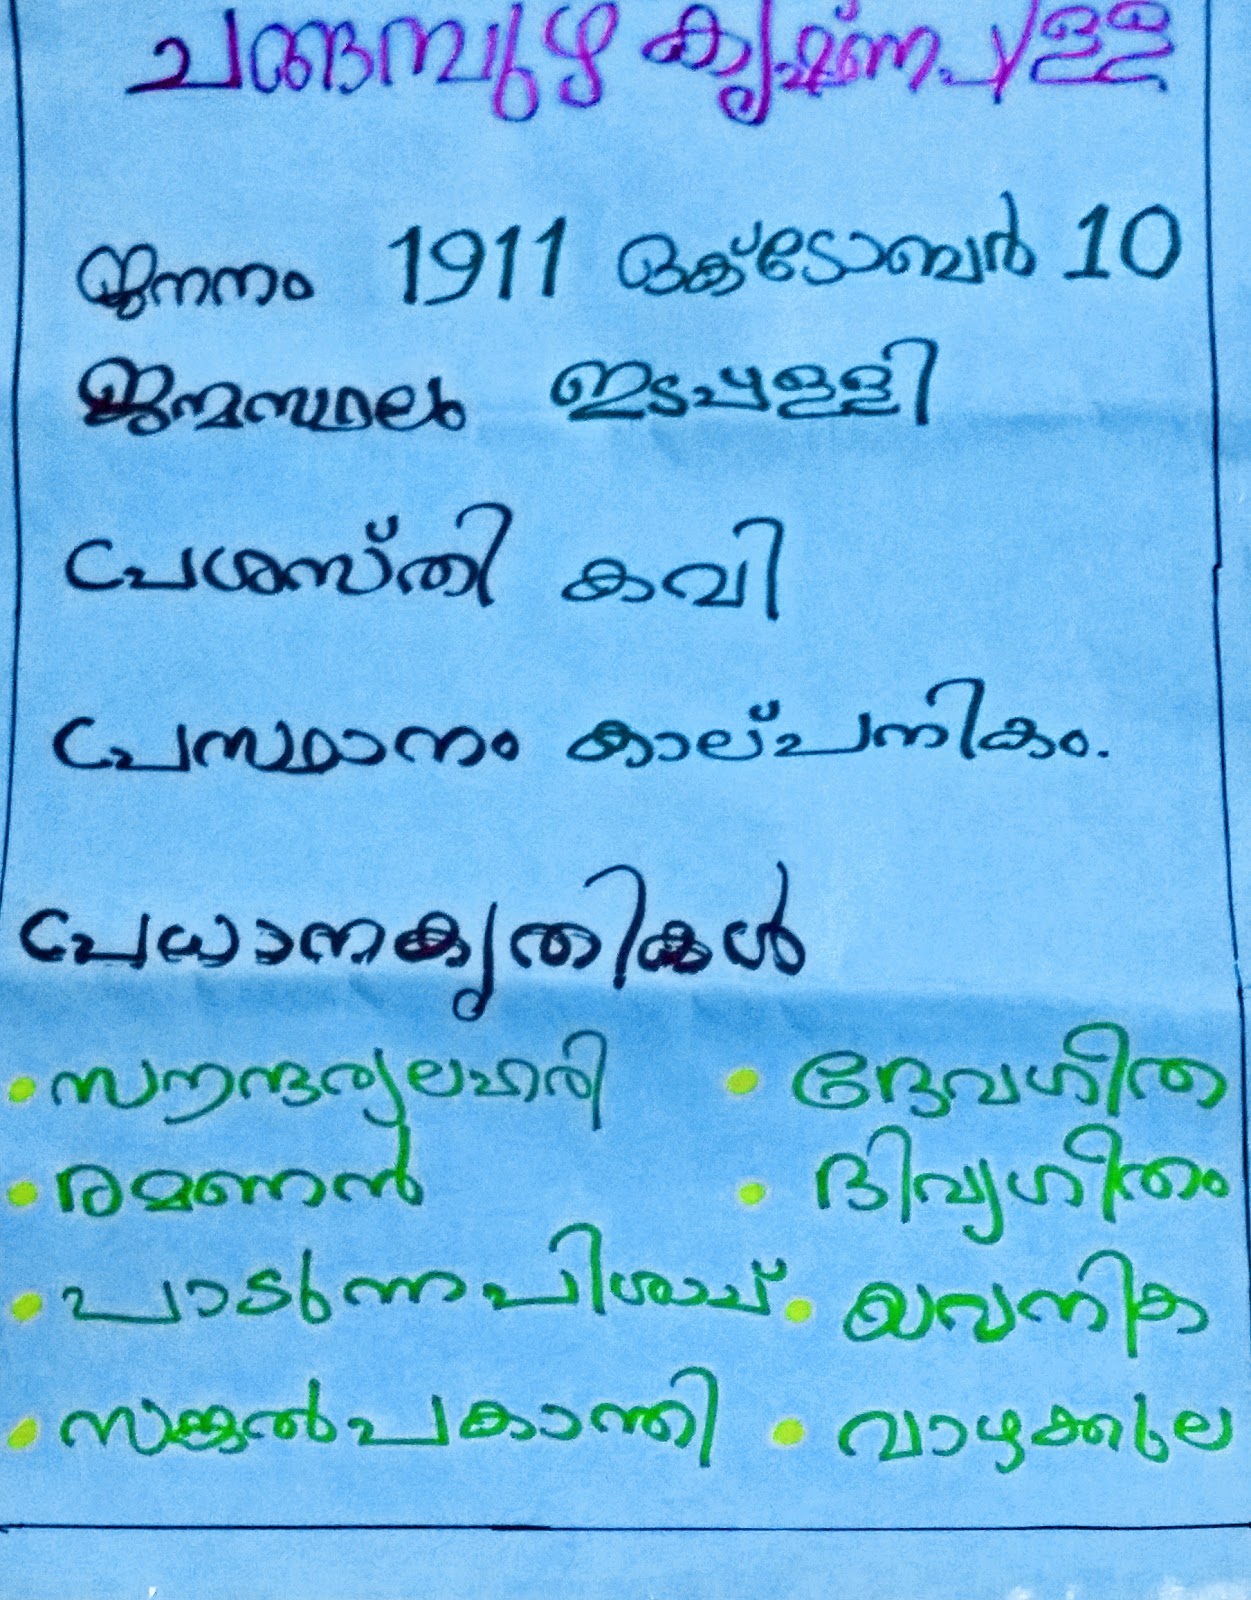 ചങ്ങമ്പുഴ കൃഷ്ണപിള്ള
ജനനം 1911 ഒക്ടോബർ 10
ജന്മസ്ഥലം ഇടപ്പള്ളി
പ്രശസ്തി കവി
പ്രസ്ഥാനം കാല്പനികം.
പ്രധാനകൃതികൾ
• സൗന്ദര്യലഹരി • ദേവഗീത
• രമണൻ • ദിവ്യഗീതം
• പാടുന്ന പിശാച് • യവനിക
• സങ്കൽപകാന്തി • വാഴക്കുല